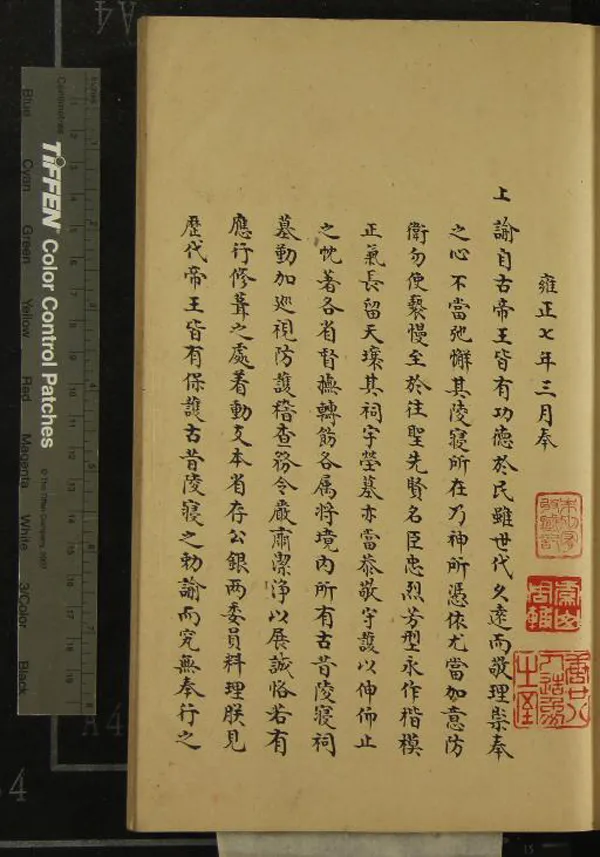 雍正七年三月奉
上諭自古帝王皆有功德於民雖世代久遠而敬理崇奉
之心不當弛懈其陵寢所在乃神所憑依尤當加意防
衛勿使褻慢至於往聖先賢名臣忠烈芳型永作楷模
正氣長留天壤其祠宇塋墓亦當恭敬守護以伸仰止
之忱著各省督撫轉飭各属将境內所有古昔陵寢祠
墓勤加巡視防護稽查務令嚴肅潔淨以展誠恪若有
應行修葺之處着動支本省存公銀两委員料理朕見
歷代帝王皆有保護古昔陵寢之勅諭而究無奉行之
TIFFEN Color Control Patches
© The Tiffen Company, 2007
Centimetres
Inches
Blue Cyan Green Yellow Red Magenta White 3/Color Black
A4